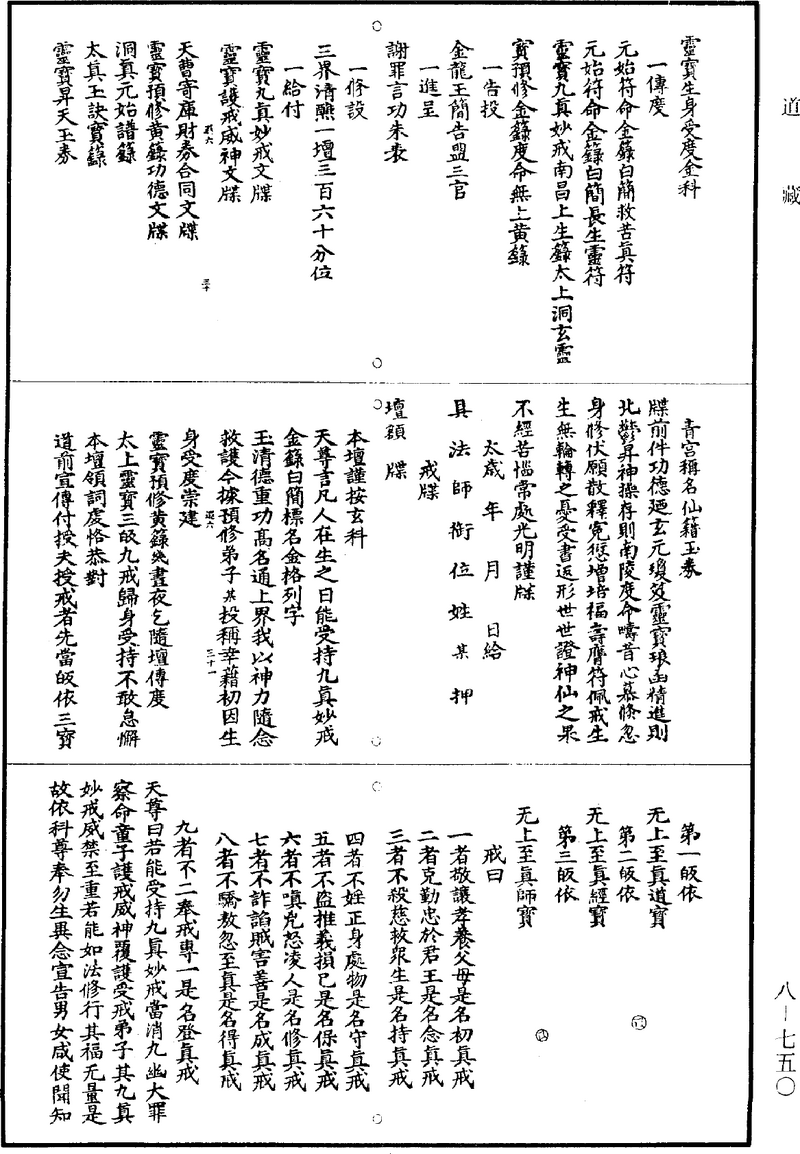 道藏
靈寶生身受度金科
一傳度
元始符命金籙白簡救苦真符
元始符命金籙白簡長生靈符
靈寶九真妙戒南昌上生籙太上洞玄靈
寶預修金籙度命無上黃籙
一告投
金龍玉簡告盟三官
一進呈
謝罪言功朱表
一修設
三界清醮一壇三百六十分位
一給付
靈寶九真妙戒文牒
靈寶護戒威神文牒
三十
天曹寄庫財券合同文牒
靈寶預修黃籙功德文牒
洞真元始譜籙
太真玉訣寶籙
靈寶昇天玉券
青宮稱名仙籍玉券
牒前件功德廼玄元瓊笈靈寶琅函精進則
北酆昇神操存則南陵度命疇昔心慕倏忽
身修伏願敷釋寃愆增培福壽膺符佩戒生
生無輪轉之憂受書返形世世證神仙之果
不經苦惱常處光明謹牒
太歲年月日給
具法師銜位姓某押
戒牒
壇額牒
本壇謹按玄科
天尊言凡人在生之日能受持九真妙戒
金籙白簡標名金格列字
玉清德重功高名通上界我以神力隨念
救護今據預修弟子某投稱幸藉初因生
三十一
身受度崇建
靈寶預修黃籙幾晝夜乞隨壇傳度
太上靈寶三皈九戒歸身受持不敢怠懈
本壇領詞處恪恭對
道前宣傳付授夫授戒者先當皈依三寶
第一皈依
无上至真道寶
第二皈依
无上至真經寶
第三皈依
无上至真師寶
戒曰
一者敬讓孝養父母是名初真戒
二者克勤忠於君王是名念真戒
三者不殺慈救眾生是名持真戒
四者不婬正身處物是名守真戒
五者不盜推義損己是名保真戒
六者不嗔兇怒凌人是名修真戒
七者不詐諂賊害善是名成真戒
八者不驕敖忽至真是名得真戒
九者不二奉戒專一是名登真戒
天尊曰若能受持九真妙戒當消九幽大罪
察命童子護戒威神覆護受戒弟子其九真
妙戒威禁至重若能如法修行其福无量是
故依科尊奉勿生異念宣告男女咸使聞知
八－七五〇